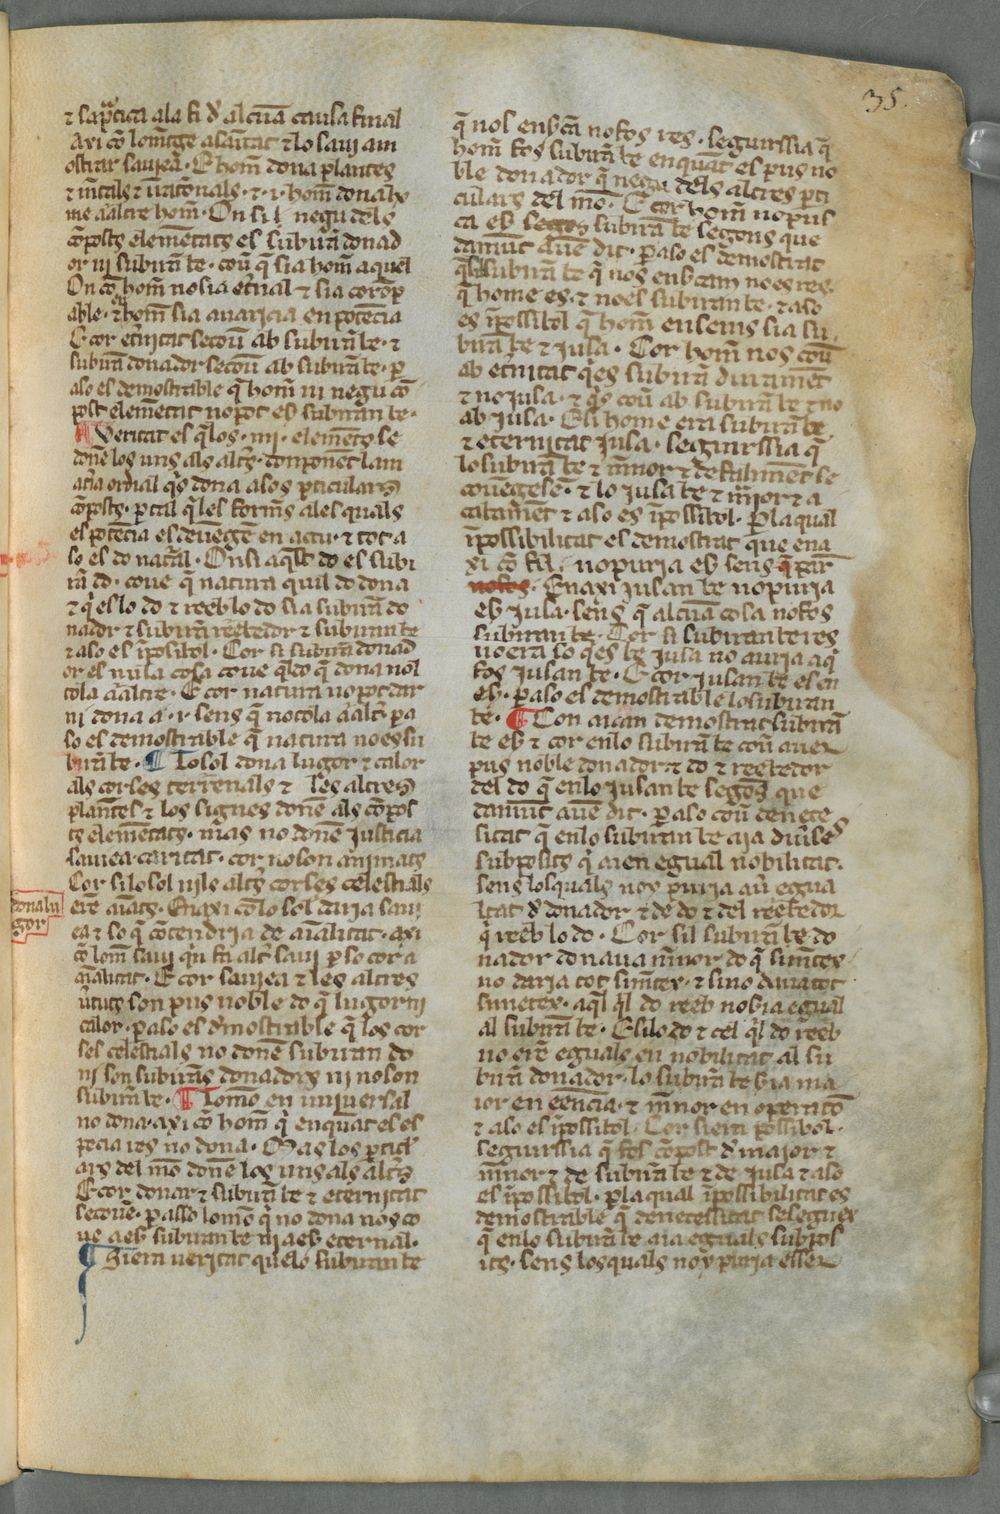 35.
⁊ sa p̃ctica a la fi d̃ alcuna causa final
Axi cõ lo metge a sanitat ⁊ lo saui a m
ostrar sauiea · E hom̃ dona plantes
⁊ mẽtals ⁊ uacionals · ⁊ · i · hom̃ dona lx
me a altre hom̃ · On si l negu dels
cõposts elemẽtats es subirã donad
or ni subirã be · coue q̃ sia hom̃ aquel
On cõ hom̃ no sia eternal ⁊ sia corõp
able · ⁊ hom̃ sia auaricia en potẽcia
E cor eternitat secoue ab subirã be · ⁊
subirã donador secoue ab subirã be · p̃
aso es demostrable q̃ hom̃ ni negu cõ
post elemẽtat no pot es subiran be ·
Veritat es q̃ los · iiii · elemẽts se
donẽ los uns als altr̃s · conponẽt la m
ateria ordial q̃s dona a sos p̃ticulars
cõposts · p̃ la qual q̃ les formes a les quals
es potẽcia esdeuẽgẽ en actu · ⁊ tot a
so es do natural · On si aq̃st do es subi
rã do · coue q̃ natura qui l do dona
⁊ q̃ es lo do ⁊ reeb lo do sia subirã do
nador ⁊ subirã reebedor ⁊ subiran be
⁊ aso es ĩposibol · Cor si subirã donad
or es nula cosa coue q̃ l do q̃ dona nol
tola a altre · E cor natura no pot dar
ni dona a · i · sens q̃ no tola a altr̃ p̃ a
so es demostrable q̃ natura no es su
birã be · Lo sol dona lugor ⁊ calor
als corses terrenals ⁊ les altres
planetes ⁊ los signes donẽ als cõpos
ts elemẽtats · mas no donẽ justicia
sauiea caritat · cor no son animats
Cor si lo sol ni ls altr̃s corses celestials
ere aĩats · Enaxi cõ lo sol daria saui
ea ⁊ so q̃ cõtendria de aĩalitat · axi
cõ lom̃ saui q̃ n fa altr̃ saui p̃ so cor a
aĩalitat · E cor sauiea ⁊ les altres
uirtuts son pus noble do q̃ lugor ni
calor · p̃ aso es demostrable q̃ los cor
ses celestials no donẽ subiran do
ni son subirãs donadors ni no son
subirã be · Lo mo en uniuersal
no dona · axi cõ hom̃ q̃ enquãt es es
pecia res no dona · Mas los p̃ticul
ars del mõ donẽ los uns als altr̃s
E cor donar ⁊ subirã be ⁊ eternitat
secoue · p̃ asso lo mõ q̃ no dona nos co
ue a es subiran be ni a es eternal ·
Si em ueritat que lo subiran be
dona lu
gor
q̃ nos en b̃ca no fos res · seguirssia q̃
hom̃ fos subirã be enquãt es pus no
ble donador q̃ negu dels altres p̃ti
culars del mõ · E cor hom̃ no pus
ca es segons subirã be segons que
dauant auẽ dit · p̃ aso es demostrat
q̃ si l subirã be q̃ nos enb̃cam no es res ·
q̃ home es · ⁊ no es subiran be · ⁊ aso
es ĩpossibol q̃ hom̃ ensems sia su
birã be ⁊ jusa · Cor hom̃ nos coue
ab eternitat q̃ es subirã duramẽt
⁊ no jusa · ⁊ q̃s coue ab subirã be ⁊ no
ab jusa · E si home era subirã be
⁊ eternitat jusa · seguirssia q̃
lo subirã be ⁊ menor ⁊ defalimẽt se
couẽgesẽ · ⁊ lo jusa be ⁊ major ⁊ a
cabamẽt ⁊ aso es ĩpossibol · Per la qual
ĩpossibilitat es demostrat que ena
xi cõ fil no puria es sens q̃ pare
no fos · Enaxi jusan be no puria
es jusa · sens q̃ alcuna cosa no fos
subiran be · Cor si subiran be res
no era so q̃ es be jusa no auria a q̃
fos jusan be · E cor jusan be es en
es · p̃ aso es demostrable lo subiran
be · Con aiam demostrat subirã
be es ⁊ cor en lo subirã be coue auer
pus noble donador ⁊ do ⁊ reebedor
del do q̃ en lo jusan be segons que
dauant auẽ dit · p̃ aso coue de nece
sitat q̃ en lo subiran be aia diuerses
subposits q̃ aien egual nobilitat ·
sens los quals noy puria au̾ egua
ltat d̃ donador ⁊ de do ⁊ del reebedor
q̃ reeb lo do · Cor si l subirã be do
nador donaua menor do q̃ simetex
no daria tot simetex · ⁊ si no daua tot
simetex · aq̃l q̃ l do reeb no sia egual
al subirã be · E si lo do ⁊ cel q̃ l do reeb
no erẽ eguals en nobilitat al su
birã donador · lo subirã be sia ma
ior en eencia · ⁊ menor en operatõ
⁊ aso es ĩpossibol · Cor si era possibol ·
seguirssia q̃ fos cõpost d̃ major ⁊
menor ⁊ de subirã be ⁊ de jusa ⁊ aso
es ĩpossibol · p̃ la qual ĩpossibilitat es
demostrable q̃ de necessitat se seguex
q̃ en lo subirã be aia eguals subpos
its · sens los quals noy puria esser